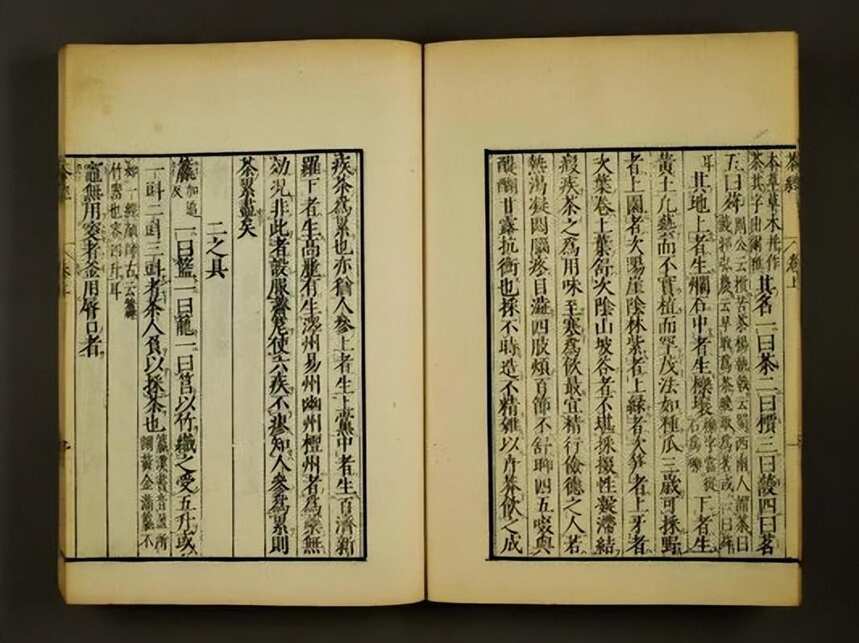 茶經 卷上
本草草木并作茶其字出爾雅其名一曰茶二曰檟三曰蔎四曰茗
五曰荈周公云檟苦茶楊執戟云蜀西南人謂茶曰蔎郭弘農云早取爲茶晚取爲茗或一曰荈
耳其地上者生爛石中者生櫟壤櫟字當從石爲礫下者生
黃土凡藝而不實植而罕茂法如種瓜三歲可採野
者上園者次陽崖陰林紫者上綠者次笋者上牙者
次葉卷上葉舒次陰山坡谷者不堪採掇性凝滯結
瘕疾茶之爲用味至寒爲飲最宜精行儉德之人若
熱渴凝悶腦疼目澁四肢煩百節不舒聊四五啜與
醍醐甘露抗衡也採不時造不精雜以卉莽飲之成
疾茶爲累也亦猶人參上者生上黨中者生百濟新
羅下者生高麗有生澤州易州幽州檀州者爲藥無
効況非此者設服薺苨使六疾不瘳知人參爲累則
茶累盡矣
二之具
籝加追反一曰籃一曰籠一曰筥以竹織之受五升或
一㪷二㪷三㪷者茶人負以採茶也籝漢書音盈所謂黃金滿籝不
如一經顔師古云籝竹器也容四升耳
竈無用突者釜用脣口者
茶經